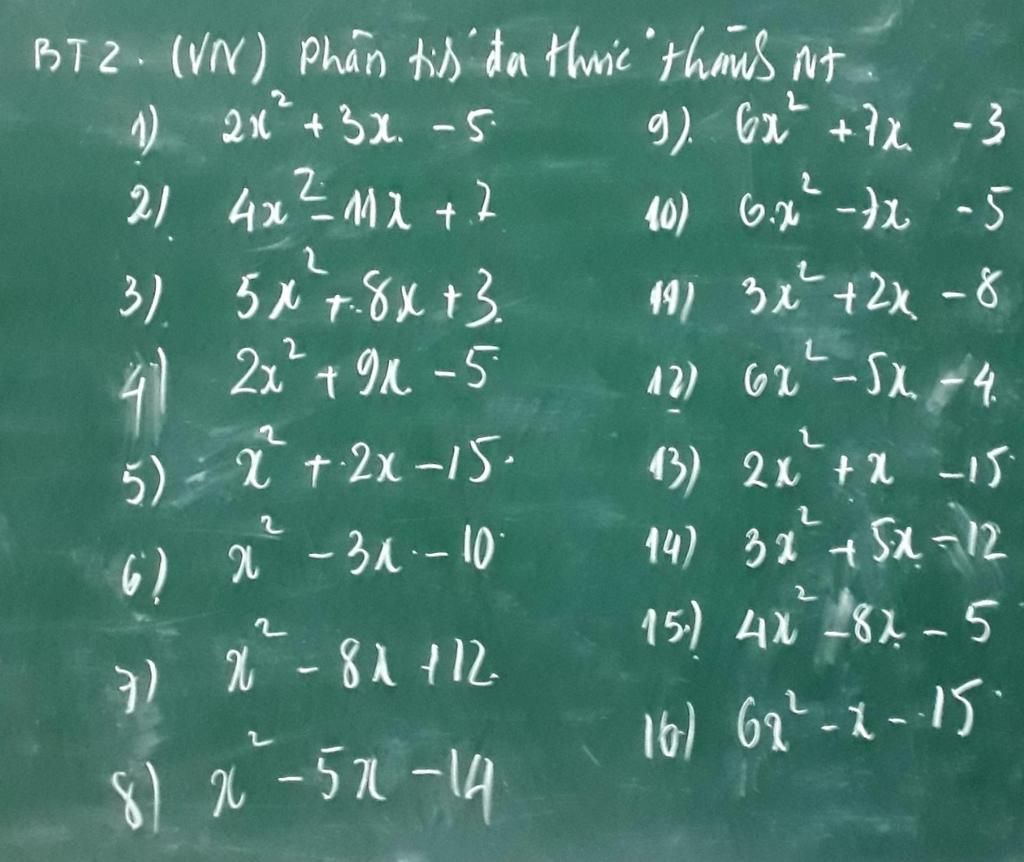 BT2. (VN) Phân tích đa thức thành NT.
1) 2x² + 3x - 5
2) 4x² - 11x + 7
3) 5x² + 8x + 3
4) 2x² + 9x - 5
5) x² + 2x - 15
6) x² - 3x - 10
7) x² - 8x + 12
8) x² - 5x - 14
9) 6x² + 7x - 3
10) 6x² - 7x - 5
11) 3x² + 2x - 8
12) 6x² - 5x - 4
13) 2x² + x - 15
14) 3x² + 5x - 12
15) 4x² - 8x - 5
16) 6x² - x - 15